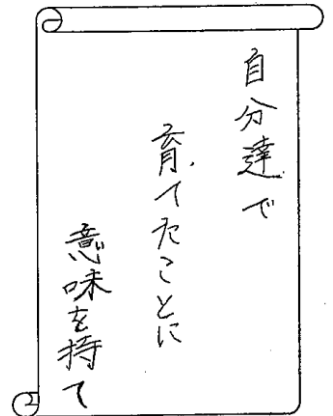 自分達で
育てたことに
意味を持て